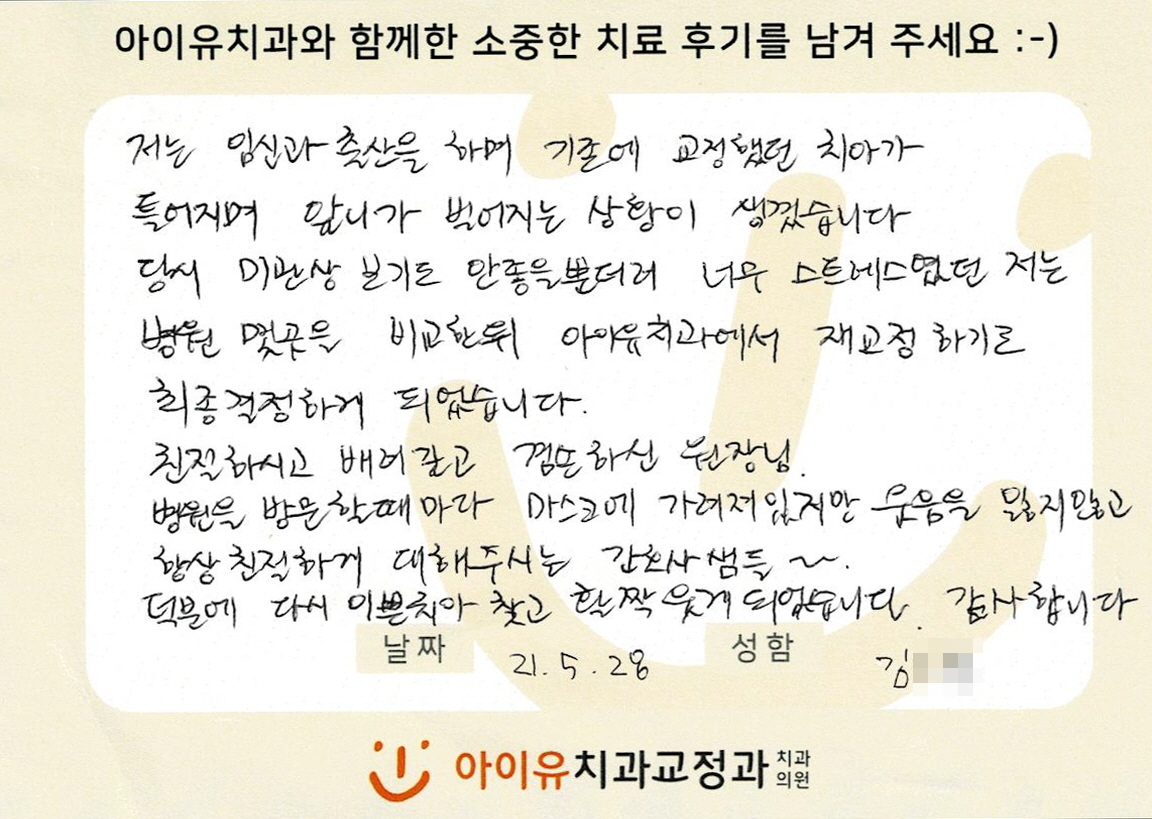 아이유치과와 함께한 소중한 치료 후기를 남겨 주세요 :-)
저는 임신과 출산을 하며 기존에 교정했던 치아가
틀어지며 앞니가 벌어지는 상황이 생겼습니다
당시 미관상 보기도 안좋을뿐더러 너무 스트레스였던 저는
병원 몇곳을 비교한뒤 아이유치과에서 재교정 하기로
최종결정하게 되었습니다.
친절하시고 배려깊고 겸손하신 원장님.
병원을 방문할때마다 마스크에 가려져있지만 웃음을 잃지않고
항상 친절하게 대해주시는 간호사쌤들~.
덕분에 다시 이쁜치아 찾고 활짝 웃게 되었습니다. 감사합니다
날짜 21.5.28 성함 김
아이유치과교정과 치과의원